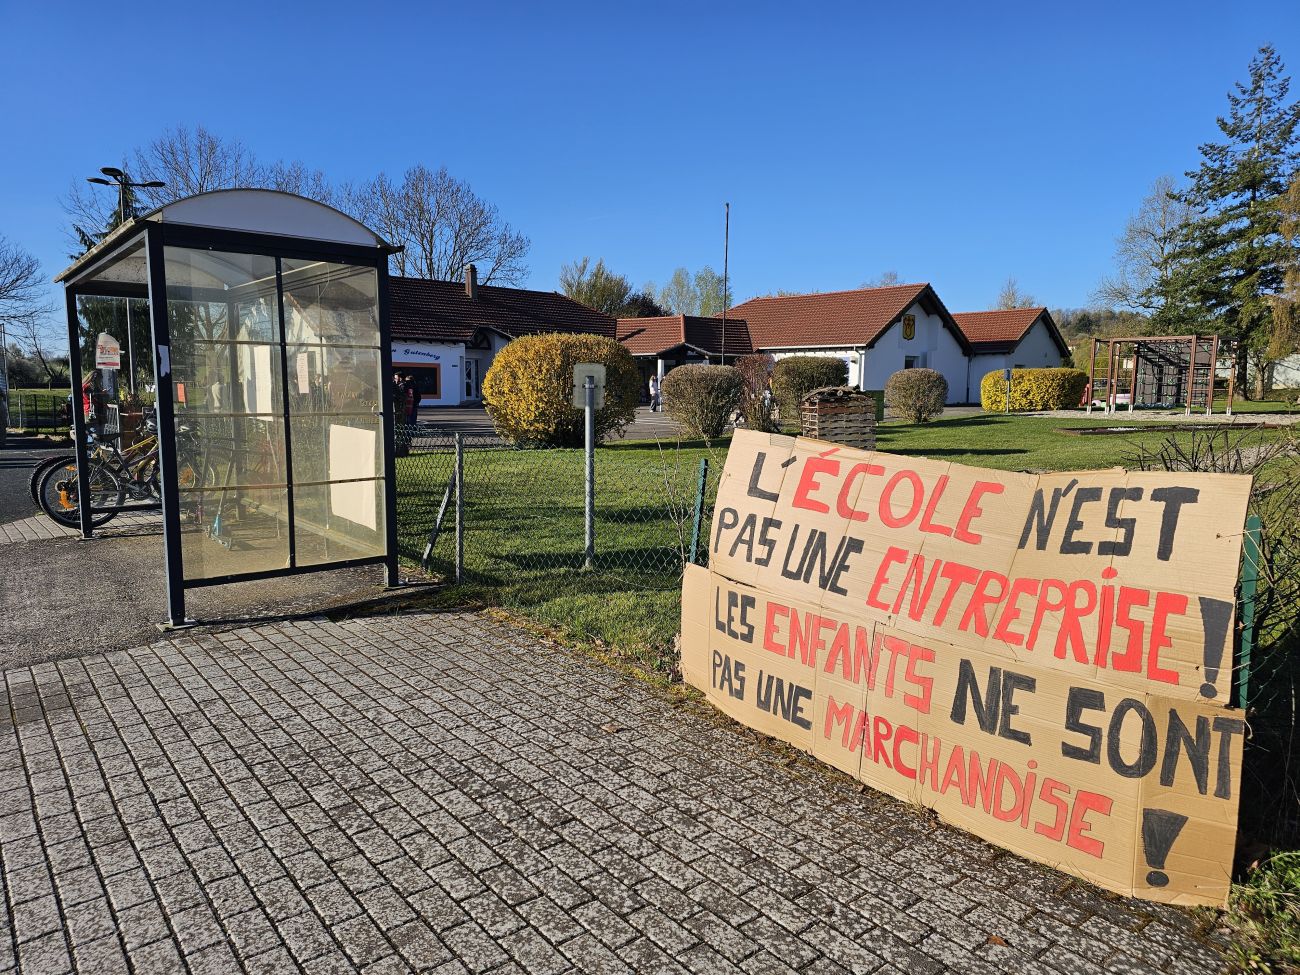 Gutenberg
L'ÉCOLE N'EST
PAS UNE ENTREPRISE !
LES ENFANTS NE SONT
PAS UNE MARCHANDISE !